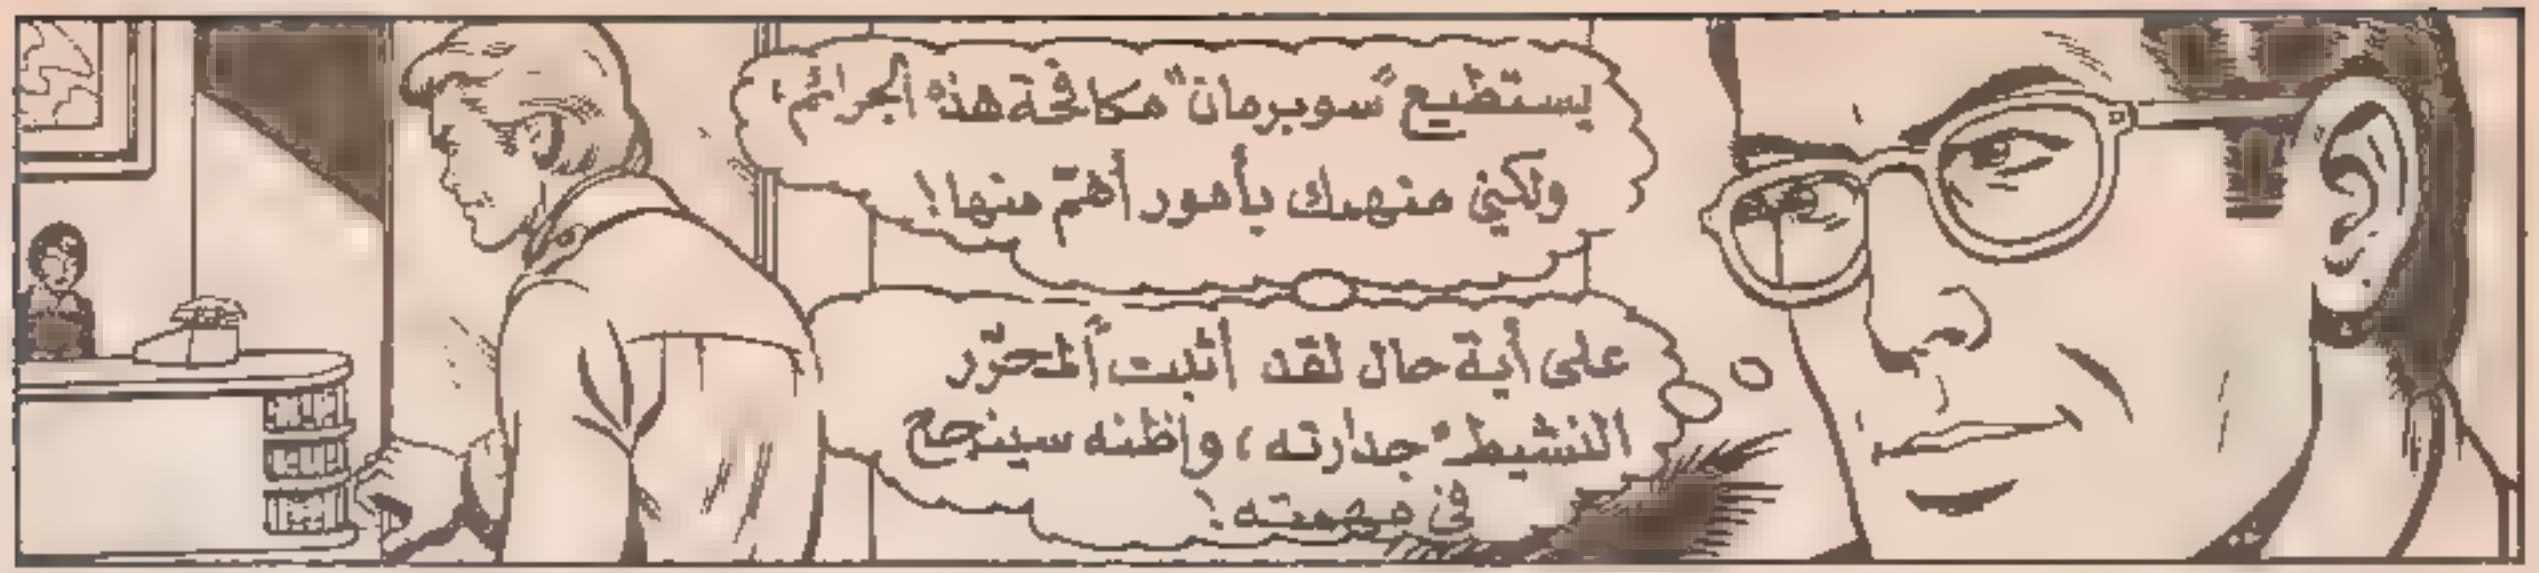 يستطيع "سوبرمان" مكافحة هذه الجرائم،
ولكني منهمك بأمور أهمّ منها!
على أية حال لقد أثبت "المحرّر
النشيط" جدارته، واظنه سينجح
في مهمته!